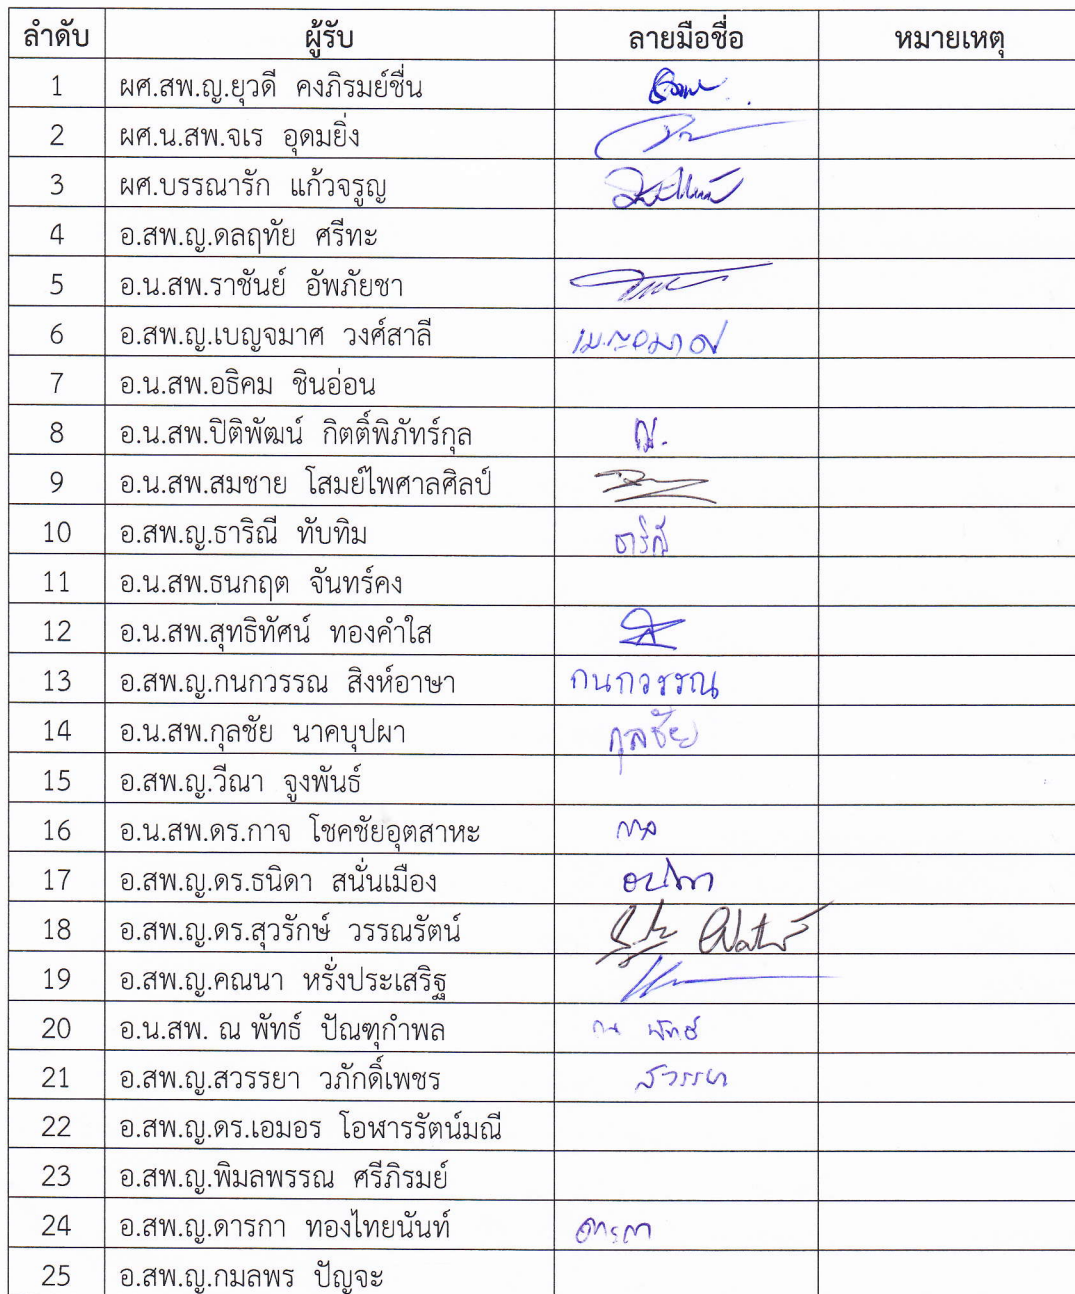 ลำดับ ผู้รับ ลายมือชื่อ หมายเหตุ
1 ผศ.สพ.ญ.ยุวดี คงภิรมย์ชื่น
2 ผศ.น.สพ.จเร อุดมยิ่ง
3 ผศ.บรรณารัก แก้วจรูญ
4 อ.สพ.ญ.ดลฤทัย ศรีทะ
5 อ.น.สพ.ราชันย์ อัพภัยชา
6 อ.สพ.ญ.เบญจมาศ วงศ์สาลี เบญจมาศ
7 อ.น.สพ.อธิคม ชินอ่อน
8 อ.น.สพ.ปิติพัฒน์ กิตติ์พิภัทร์กุล
9 อ.น.สพ.สมชาย โสมย์ไพศาลศิลป์
10 อ.สพ.ญ.ธาริณี ทับทิม ธาริณี
11 อ.น.สพ.ธนกฤต จันทร์คง
12 อ.น.สพ.สุทธิทัศน์ ทองคำใส
13 อ.สพ.ญ.กนกวรรณ สิงห์อาษา กนกวรรณ
14 อ.น.สพ.กุลชัย นาคบุปผา กุลชัย
15 อ.สพ.ญ.วีณา จูงพันธ์
16 อ.น.สพ.ดร.กาจ โชคชัยอุตสาหะ กาจ
17 อ.สพ.ญ.ดร.ธนิดา สนั่นเมือง ธนิดา
18 อ.สพ.ญ.ดร.สุวรักษ์ วรรณรัตน์
19 อ.สพ.ญ.คณนา หรั่งประเสริฐ
20 อ.น.สพ. ณ พัทธ์ ปัณฑุกำพล ณ พัทธ์
21 อ.สพ.ญ.สวรรยา วภักดิ์เพชร สวรรยา
22 อ.สพ.ญ.ดร.เอมอร โอฬารรัตน์มณี
23 อ.สพ.ญ.พิมลพรรณ ศรีภิรมย์
24 อ.สพ.ญ.ดารกา ทองไทยนันท์ ดารกา
25 อ.สพ.ญ.กมลพร ปัญจะ